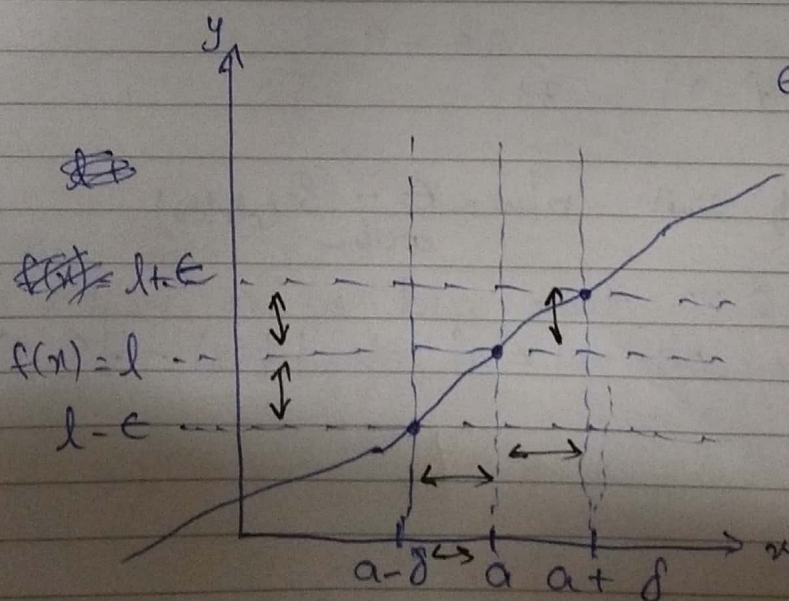 y
l + ε
f(x) = l
l - ε
a - δ a a + δ x